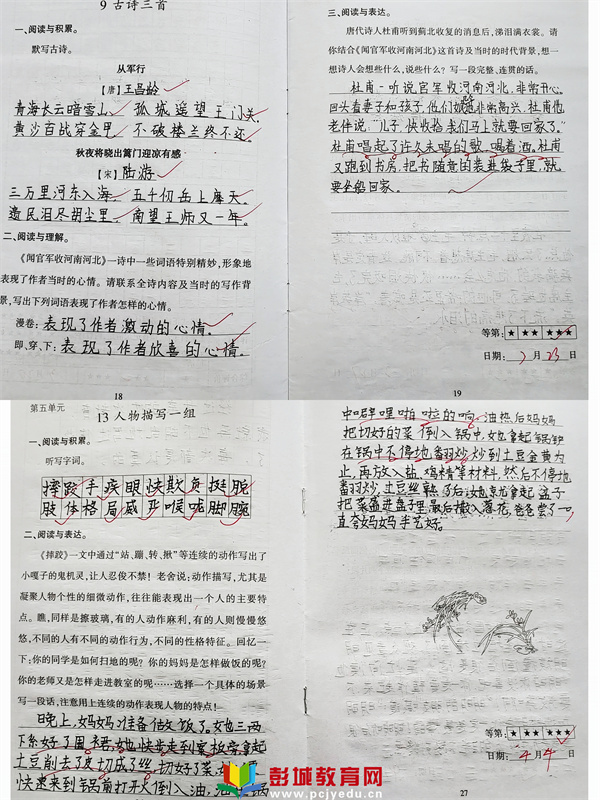 9 古诗三首
一、阅读与积累。
默写古诗。
从军行
【唐】王昌龄
青海长云暗雪山，孤城遥望玉门关。
黄沙百战穿金甲，不破楼兰终不还。
秋夜将晓出篱门迎凉有感
【宋】陆游
三万里河东入海，五千仞岳上摩天。
遗民泪尽胡尘里，南望王师又一年。
二、阅读与理解。
《闻官军收河南河北》一诗中一些词语特别精妙，形象地
表现了作者当时的心情。请联系全诗内容及当时的写作背
景，写出下列词语表现了作者怎样的心情。
漫卷：表现了作者激动的心情。
即、穿、下：表现了作者欣喜的心情。
18
三、阅读与表达。
唐代诗人杜甫听到蓟北收复的消息后，涕泪满衣裳。请
你结合《闻官军收河南河北》这首诗及当时的时代背景，想一
想诗人会想些什么，说些什么？写一段完整、连贯的话。
杜甫一听说官军收河南河北，非常开心。
回头看妻子和孩子，他们也非常高兴，杜甫他
老伴说："儿子，快收拾我们马上就要回家了。"
杜甫唱起了许久未唱的歌，喝着酒。杜甫
又跑到书房，把书随意的装进袋子里，就
要坐船回家。
等第：★ ★★ ★★★
日期：2月23日
19
第五单元
13 人物描写一组
一、阅读与积累。
听写字词。
摔跤手疾眼快欺负挺脘
肢体格局威严喉咙脚腕
二、阅读与表达。
《摔跤》一文中通过"站、蹦、转、揪"等连续的动作写出了
小嘎子的鬼机灵，让人忍俊不禁！老舍说：动作描写，尤其是
凝聚人物个性的细微动作，往往能表现出一个人的主要特
点。瞧，同样是擦玻璃，有的人动作麻利，有的人则慢慢悠
悠，不同的人有不同的动作行为，不同的性格特征。回忆一
下：你的同学是如何扫地的呢？你的妈妈是怎样做饭的呢？
你的老师又是怎样走进教室的呢……选择一个具体的场景
写一段话，注意用上连续的动作表现人物的特点！
晚上，妈妈准备做饭了。她三两
下系好了围裙，她快步走到案板旁拿起
土豆削去了皮切成了丝，切好了菜，
快速来到锅前打开火倒入油，油
中噼哩啪啦的响。油热后妈妈
把切好的菜倒入锅中，她拿起锅铲
在锅中不停地翻炒炒到土豆金黄为
止，再放入盐，鸡精等材料，然后不停地
翻炒，土豆丝熟了后，她拿起盘子
把菜盛进盘子里，最后撒入葱花，爸爸尝了一口
直夸妈妈手艺好。
等第：★ ★★ ★★★
日期：4月4日
27
彭城教育网
www.pcjyedu.cn